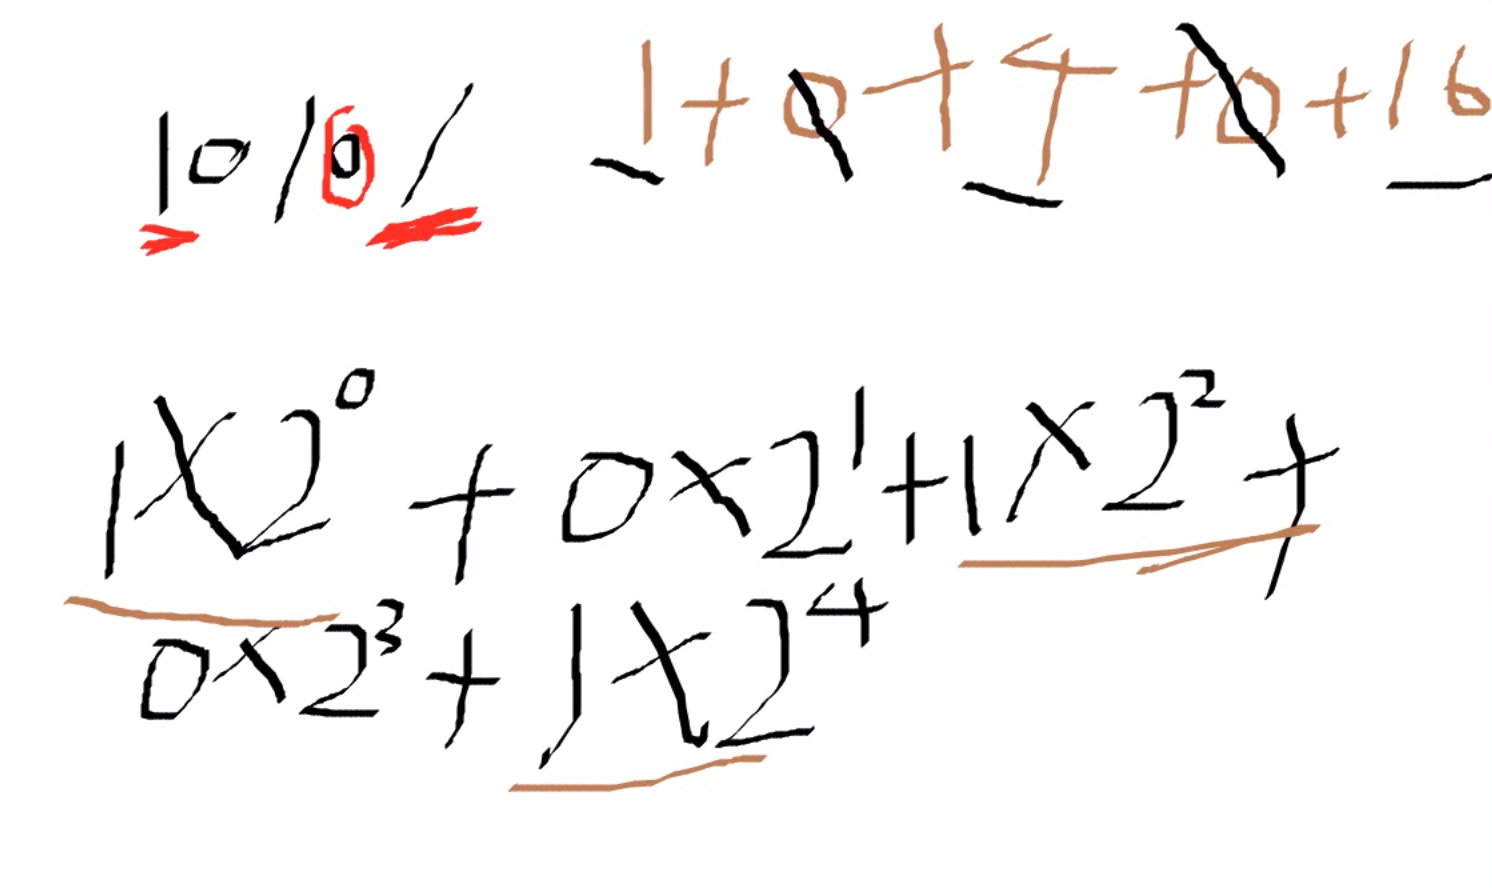 10101
1+0+4+0+16
1×2⁰+0×2¹+1×2²+
0×2³+1×2⁴